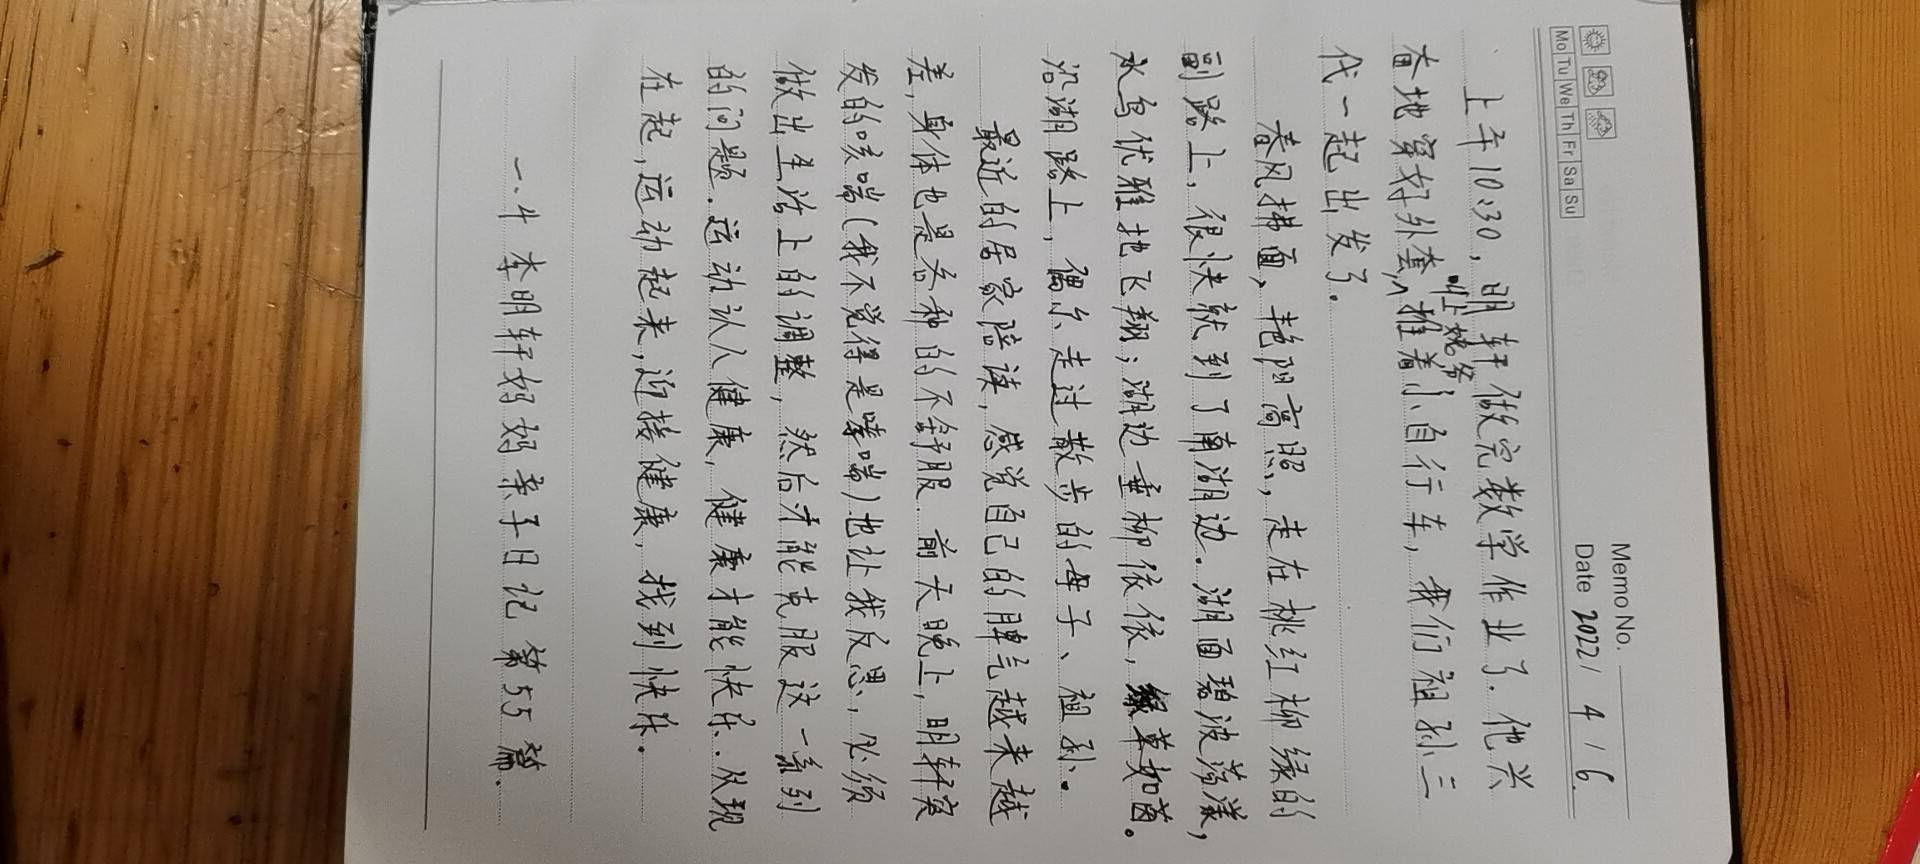 Memo No.
Mo Tu We Th Fr Sa Su
Date 2022 / 4 / 6
上午10:30，明轩做完数学作业了.他兴
奋地穿好外套，叫上姥爷推着小自行车，我们祖孙三
代一起出发了.
春风拂面，艳阳高照，走在桃红柳绿的
副路上，很快就到了南湖边.湖面碧波荡漾，
水鸟优雅地飞翔；湖边垂柳依依，绿草如茵。
沿湖路上，偶尔走过散步的母子、祖孙。
最近的居家陪读，感觉自己的脾气越来越
差，身体也是各种的不舒服.前天晚上，明轩突
发的咳喘（我不觉得是哮喘）也让我反思，必须
做出生活上的调整，然后才能克服这一系列
的问题.运动认人健康，健康才能快乐.从现
在起，运动起来，迎接健康，找到快乐。
一.4 李明轩妈妈亲子日记 第55篇.